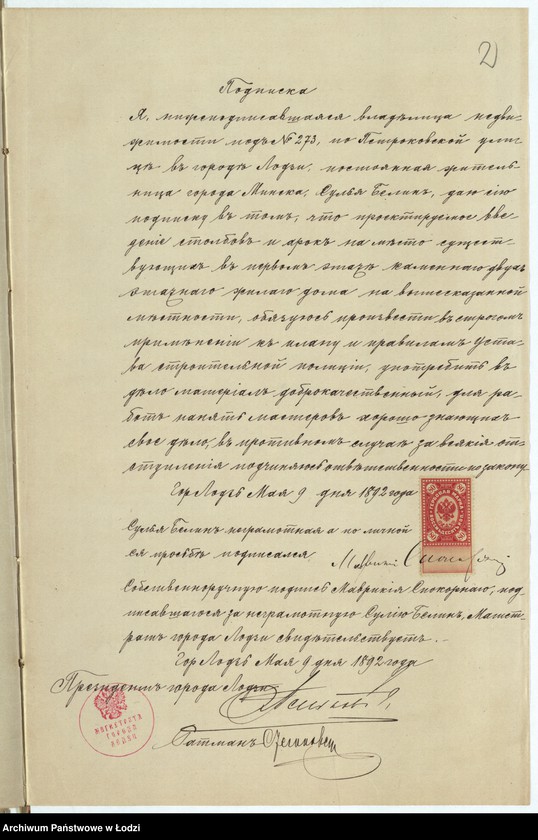 2
Подписка
Я, нижеподписавшаяся владѣлица недви-
жимости подъ № 273, по Петроковской ули-
цѣ въ городѣ Лодзи, постоянная житель-
ница города Минска, Сулья Белинъ, даю сію
подписку въ томъ, что проектируемое вве-
деніе столбовъ и арокъ на мѣсто сущест-
вующихъ въ первомъ этажѣ каменнаго двух-
этажнаго жилаго дома на вышесказанной
мѣстности, обязуюсь произвести въ строгомъ
примѣненіи къ плану и правиламъ Уста-
ва строительной полиціи, употребить въ
дѣло матеріалъ доброкачественный, для ра-
ботъ нанять мастеровъ хорошо знающихъ
свое дѣло, въ противномъ случаѣ за всякія от-
ступленія подчиняюсь отвѣтственности по закону.
Гор. Лодзь Мая 9 дня 1892 года
Сулья Белинъ неграмотная а по личной
ея просьбѣ подписался
Маврикій
Собственноручную подпись Маврикія Спокорнаго, под-
писавшагося за неграмотную Сулію Белинъ, Магист-
ратъ города Лодзи свидѣтельствуетъ. -
Гор. Лодзь Мая 9 дня 1892 года
Президентъ города Лодзи
МАГИСТРАТЪ
ГОРОДА
ЛОДЗИ
Ратманъ
Archiwum Państwowe w Łodzi